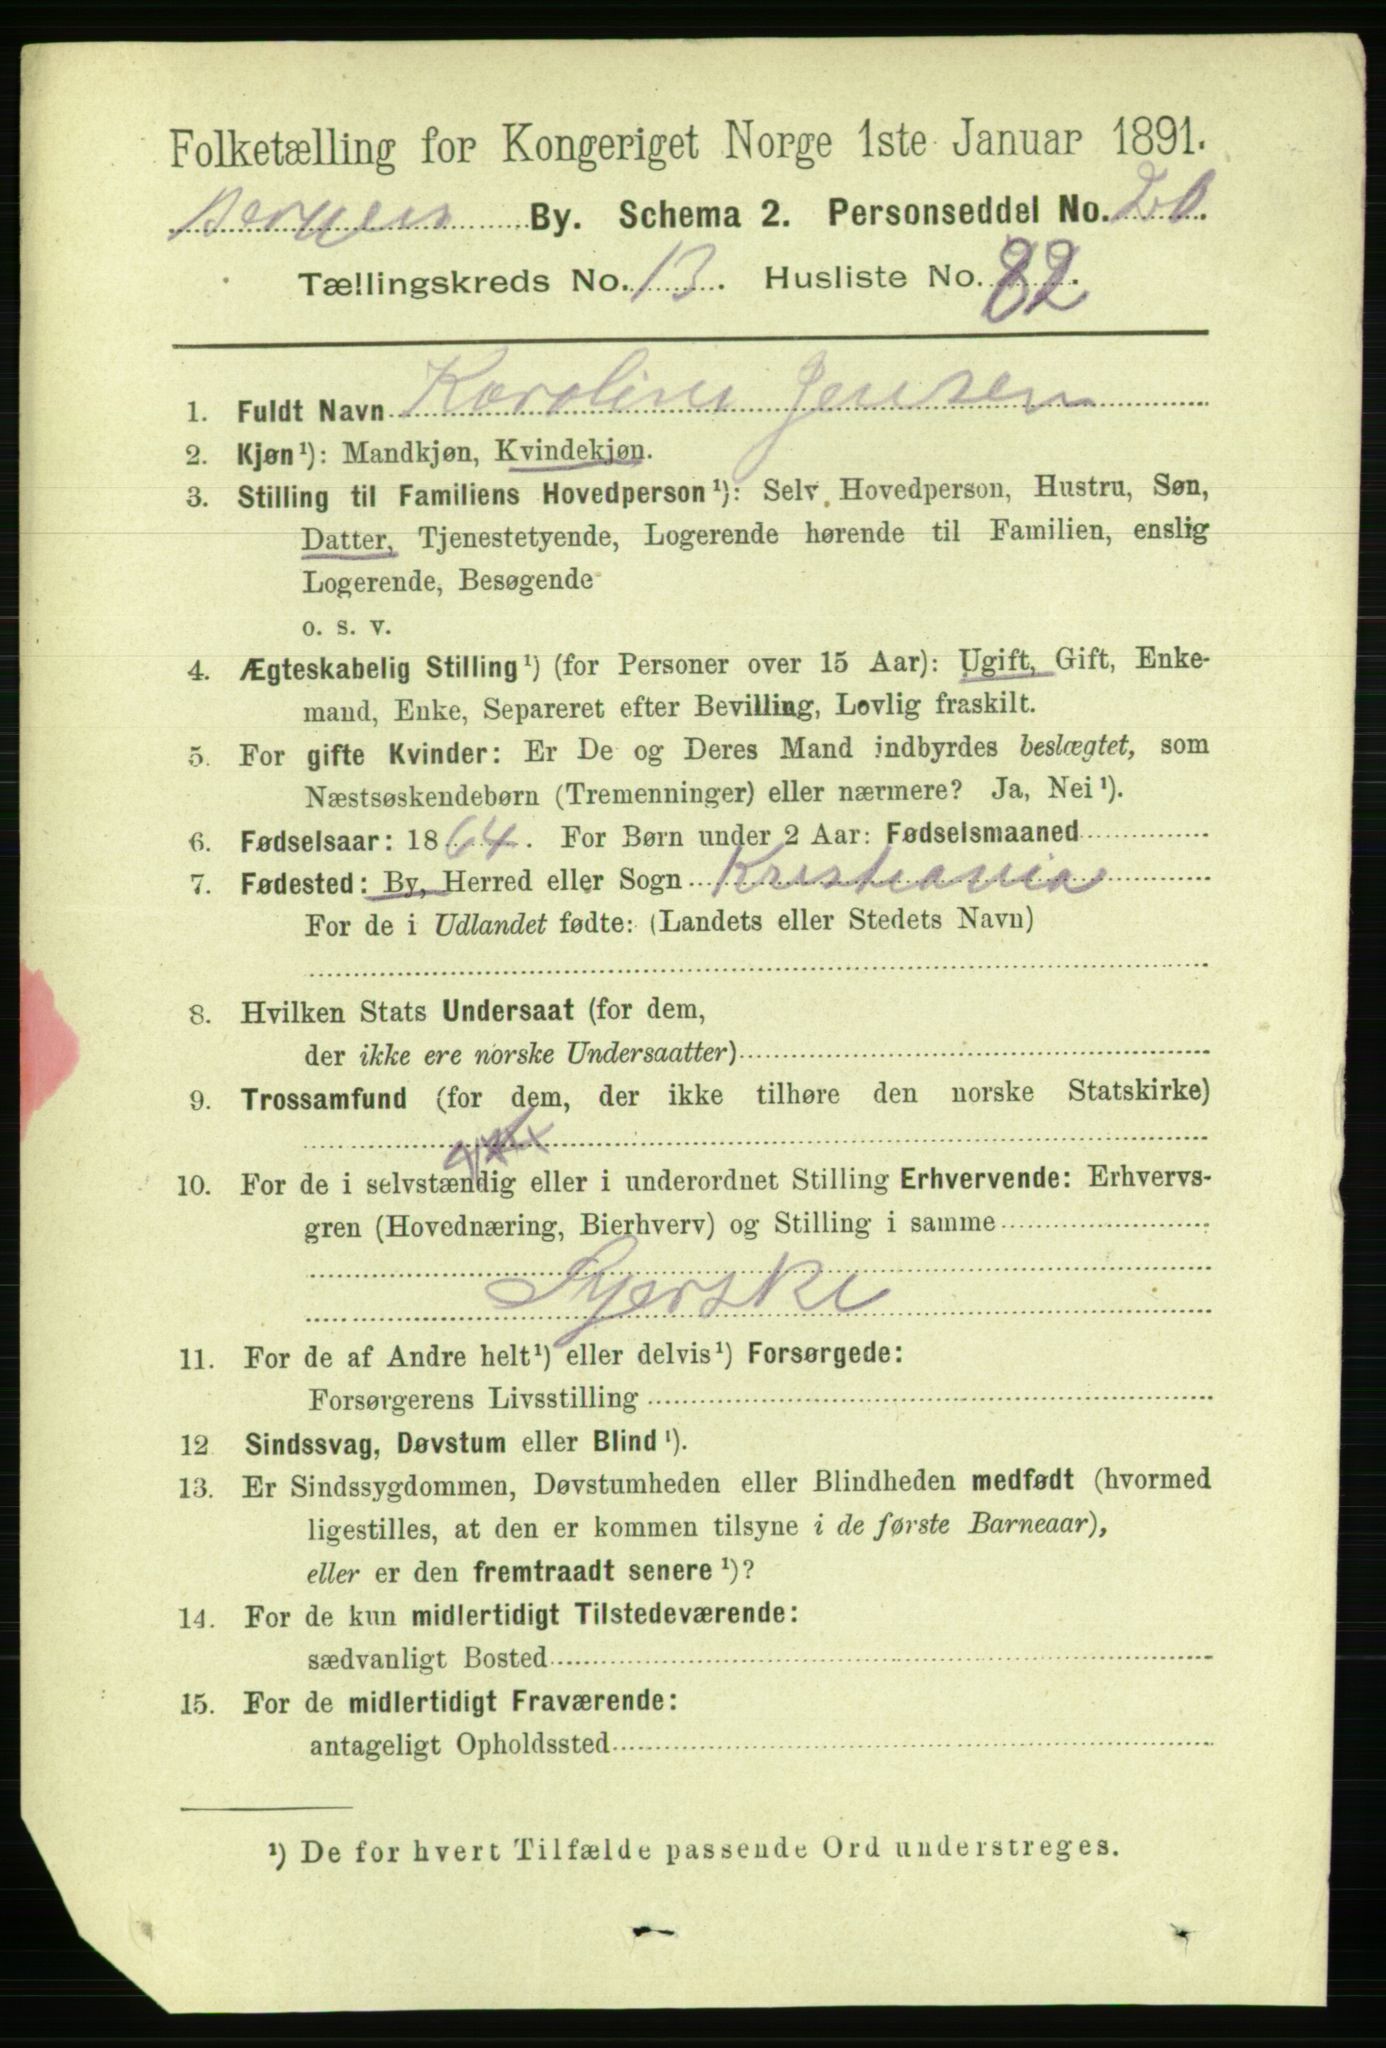 Folketælling for Kongeriget Norge 1ste Januar 1891.
Bergens By. Schema 2. Personseddel No. 20.
Tællingskreds No. 13. Husliste No. 82.
1. Fuldt Navn Karoline Jensen
2. Kjøn ¹): Mandkjøn, Kvindekjøn.
3. Stilling til Familiens Hovedperson ¹): Selv Hovedperson, Hustru, Søn,
Datter, Tjenestetyende, Logerende hørende til Familien, enslig
Logerende, Besøgende
o. s. v.
4. Ægteskabelig Stilling ¹) (for Personer over 15 Aar): Ugift, Gift, Enke-
mand, Enke, Separeret efter Bevilling, Lovlig fraskilt.
5. For gifte Kvinder: Er De og Deres Mand indbyrdes beslægtet, som
Næstsøskendebørn (Tremenninger) eller nærmere? Ja, Nei ¹).
6. Fødselsaar: 1864. For Børn under 2 Aar: Fødselsmaaned
7. Fødested: By, Herred eller Sogn Kristiania
For de i Udlandet fødte: (Landets eller Stedets Navn)
8. Hvilken Stats Undersaat (for dem,
der ikke ere norske Undersaatter)
9. Trossamfund (for dem, der ikke tilhøre den norske Statskirke)
10. For de i selvstændig eller i underordnet Stilling Erhvervende: Erhvervs-
gren (Hovednæring, Bierhverv) og Stilling i samme
Syerske
11. For de af Andre helt ¹) eller delvis ¹) Forsørgede:
Forsørgerens Livsstilling
12 Sindssvag, Døvstum eller Blind ¹).
13. Er Sindssygdommen, Døvstumheden eller Blindheden medfødt (hvormed
ligestilles, at den er kommen tilsyne i de første Barneaar),
eller er den fremtraadt senere ¹)?
14. For de kun midlertidigt Tilstedeværende:
sædvanligt Bosted
15. For de midlertidigt Fraværende:
antageligt Opholdssted
¹) De for hvert Tilfælde passende Ord understreges.